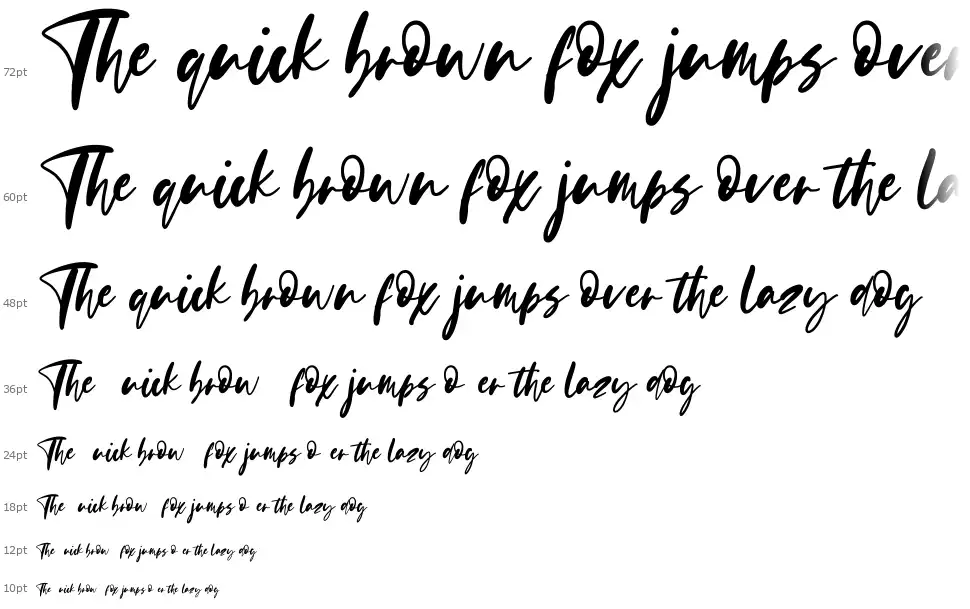 72pt The quick brown fox jumps over
60pt The quick brown fox jumps over the la
48pt The quick brown fox jumps over the lazy dog
36pt The uick brow fox jumps o er the lazy dog
24pt The uick brow fox jumps o er the lazy dog
18pt The uick brow fox jumps o er the lazy dog
12pt The uick brow fox jumps o er the lazy dog
10pt The uick brow fox jumps o er the lazy dog